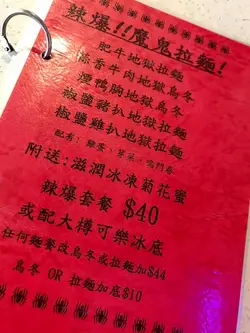 辣爆!!魔鬼拉麵!
肥牛地獄拉麵
陳香牛肉地獄烏冬
煙鴨胸地獄烏冬
椒鹽豬扒地獄拉麵
椒鹽雞扒地獄拉麵
配有: 雞蛋
附送:滋潤冰凍菊花蜜
辣爆套餐 $40
或配大樽可樂冰底
任何麵餐改烏冬或拉麵加$44
烏冬 OR 拉麵加底$10